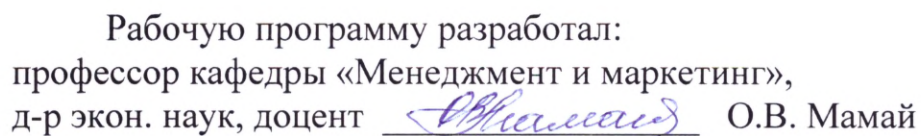 Рабочую программу разработал:
профессор кафедры «Менеджмент и маркетинг»,
д-р экон. наук, доцент О.В. Мамай